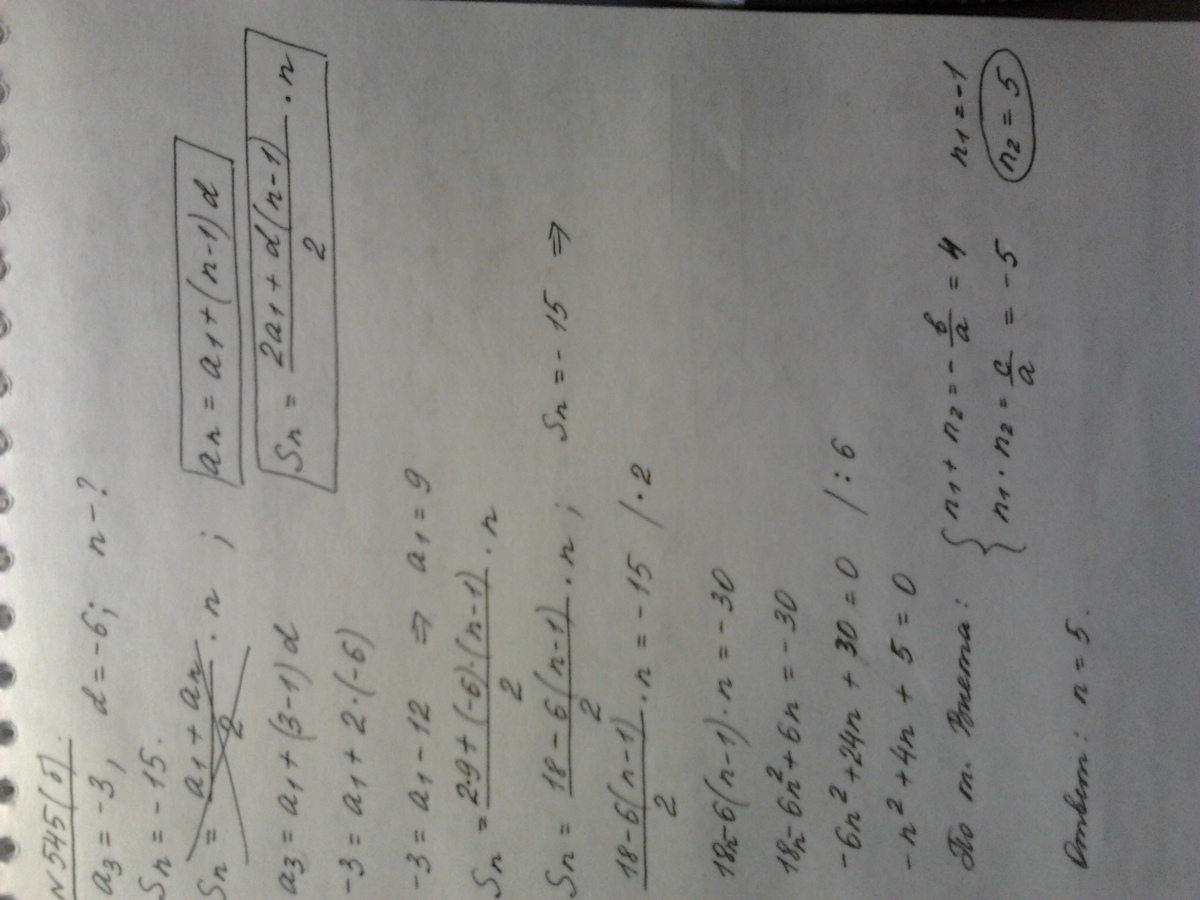 №545(б).
a₃ = -3, d = -6; n - ?
Sₙ = -15.
Sₙ = (a₁ + aₙ)/2 · n ;
aₙ = a₁ + (n-1)d
Sₙ = (2a₁ + d(n-1))/2 · n
a₃ = a₁ + (3-1)d
-3 = a₁ + 2·(-6)
-3 = a₁ - 12 ⇒ a₁ = 9
Sₙ = (2·9 + (-6)·(n-1))/2 · n
Sₙ = (18 - 6(n-1))/2 · n ; Sₙ = -15 ⇒
(18 - 6(n-1))/2 · n = -15 / · 2
18n - 6(n-1)·n = -30
18n - 6n² + 6n = -30
-6n² + 24n + 30 = 0 / : 6
-n² + 4n + 5 = 0
По т. Виета: { n₁ + n₂ = -b/a = 4 n₁ = -1
n₁ · n₂ = c/a = -5 n₂ = 5
Ответ: n = 5.